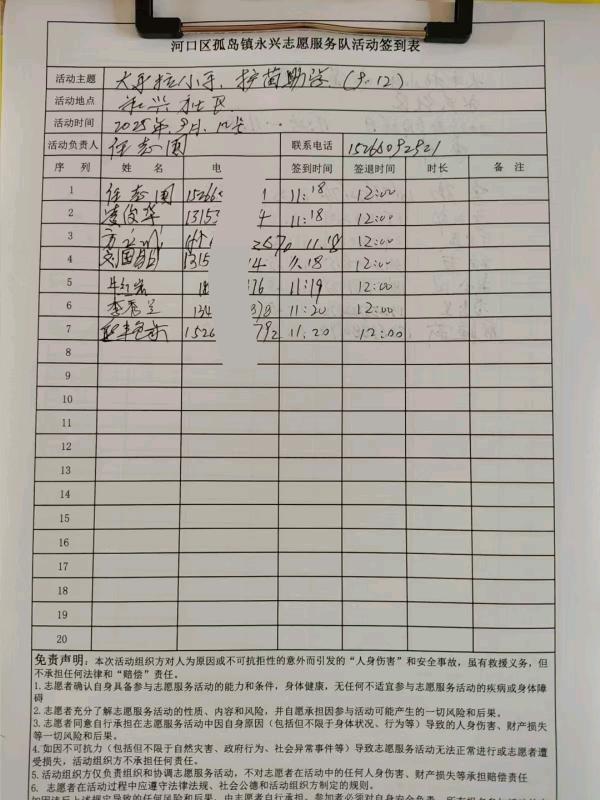 河口区孤岛镇永兴志愿服务队活动签到表
活动主题 大手拉小手、护苗助学 (9.12)
活动地点 永兴社区
活动时间 2025年.9月.12号
活动负责人 任志国 联系电话
序 列 姓 名 电 签到时间 签退时间 时长 备 注
1 任志国 15266 1 11:18 12:00
2 凌俊华 13153 4 11:18 12:00
3 2670 11.18 12:00
4 1315 14 11.18 12:00
5 牛红岩 376 11:19 12:00
6 李秀兰 134 378 11:20 12:00
7 1526 792 11.20 12:00
8
9
10
11
12
13
14
15
16
17
18
19
20
免责声明：本次活动组织方对人为原因或不可抗拒性的意外而引发的“人身伤害”和安全事故，虽有救援义务，但
不承担任何法律和“赔偿”责任。
1. 志愿者确认自身具备参与志愿服务活动的能力和条件，身体健康，无任何不适宜参与志愿服务活动的疾病或身体障
碍
2. 志愿者充分了解志愿服务活动的性质、内容和风险，并自愿承担因参与活动可能产生的一切风险和后果。
3. 志愿者同意自行承担在志愿服务活动中因自身原因（包括但不限于身体状况、行为等）导致的人身伤害、财产损失
等一切风险和后果。
4. 如因不可抗力（包括但不限于自然灾害、政府行为、社会异常事件等）导致志愿服务活动无法正常进行或志愿者遭
受损失，活动组织方不承担任何责任。
5. 活动组织方仅负责组织和协调志愿服务活动，不对志愿者在活动中的任何人身伤害、财产损失等承担赔偿责任
6. 志愿者在活动过程中应遵守法律法规、社会公德和活动组织方制定的规则。